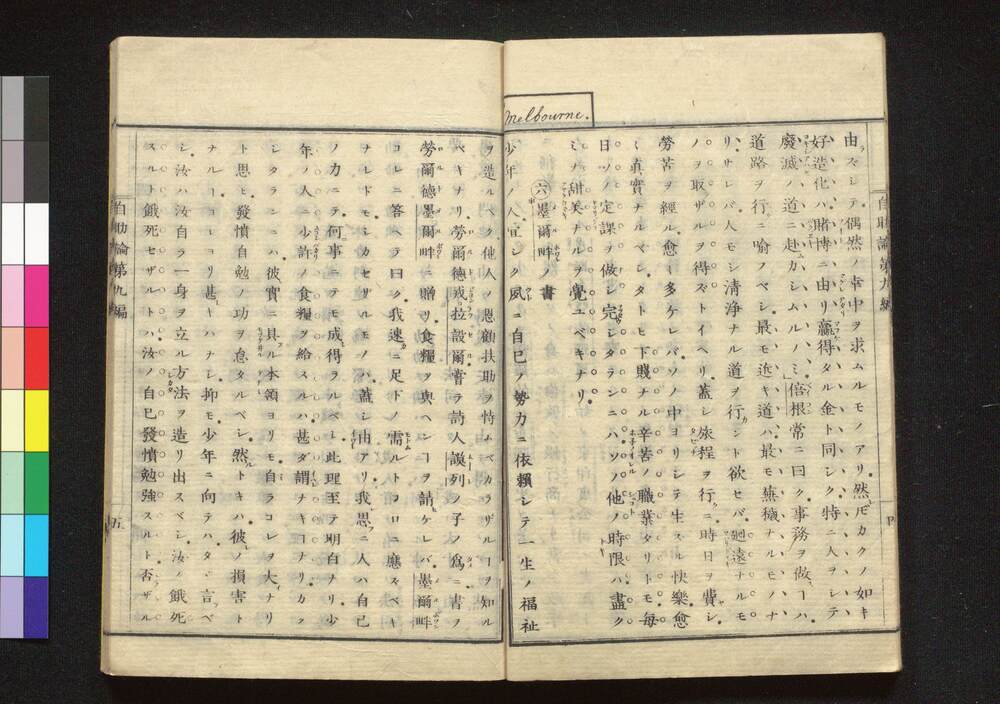 由ラズシテ偶然ノ幸中ヲ求ムルモノアリ然ドモカクノ如キ
好造化ハ賭博ニ由リ贏得タル金ト同シク特ニ人ヲシテ
廢滅ノ道ニ赴カシムルノミ倍根常ニ曰ク事務ヲ做コハ
道路ヲ行ニ喻フベシ最モ近キ道ハ最モ蕪穢ナルモノナ
リサレバ人モシ清浄ナル道ヲ行ント欲セバ廻遠ナルモ
ノヲ取ザルヲ得ズトイヘリ蓋シ旅程ヲ行クニ時日ヲ費シ
勞苦ヲ經ル愈多ケレバソノ中ヨリシテ生スル快樂愈
眞實ナルベシタトヒ下賤ナル辛苦ノ職業タリトモ毎
日ツノ定課ヲ做シ完シタランニハソノ他ノ時限ハ盡ク
ミナ甜美ナルヲ覺ユベキナリ
Melbourne.
六 墨爾畔ノ書
少年ノ人宜シク風ニ自己ノ勢力ニ依賴シテ一生ノ福祉
ヲ造ルベク他人ノ恩顧扶助ヲ恃ムベカラザルコヲ知ル
ベキナリ勞爾德戎拉設爾嘗テ詩人謨列ノ子ノ爲ニ書ヲ
勞爾德墨爾畔ニ贈リ食糧ヲ與ヘンコヲ請ケレバ墨爾畔
コレニ答ヘテ曰ク我速ニ足下ノ需ルトコロニ應ズベキ
ナレドモシカセザルモノハ蓋シ由アリ我思フニ人ハ自己
ノ力ニテ何事ニテモ成得ラルベシ此理至テ明白ナリ少
年ノ人ニ少許ノ食糧ヲ給スルハ甚ダ謂ナキコナリカク
シタランニハ彼實ニ具ル本領ヨリモ自ラコレヲ大ナリ
ト思ヒ發憤自勉ノ功ヲ怠タルベシ然ルトキハ彼ノ損害ト
ナルココレヨリ甚キハナシ抑モ少年ニ向テハタヾ言ベ
シ汝ハ汝自ラ一身ヲ立ル方法ヲ造リ出スベシ汝ノ餓死
スルト餓死セザルトハ汝ノ自己發憤勉強スルト否ザル
自助論第九編
五
自助論第九編